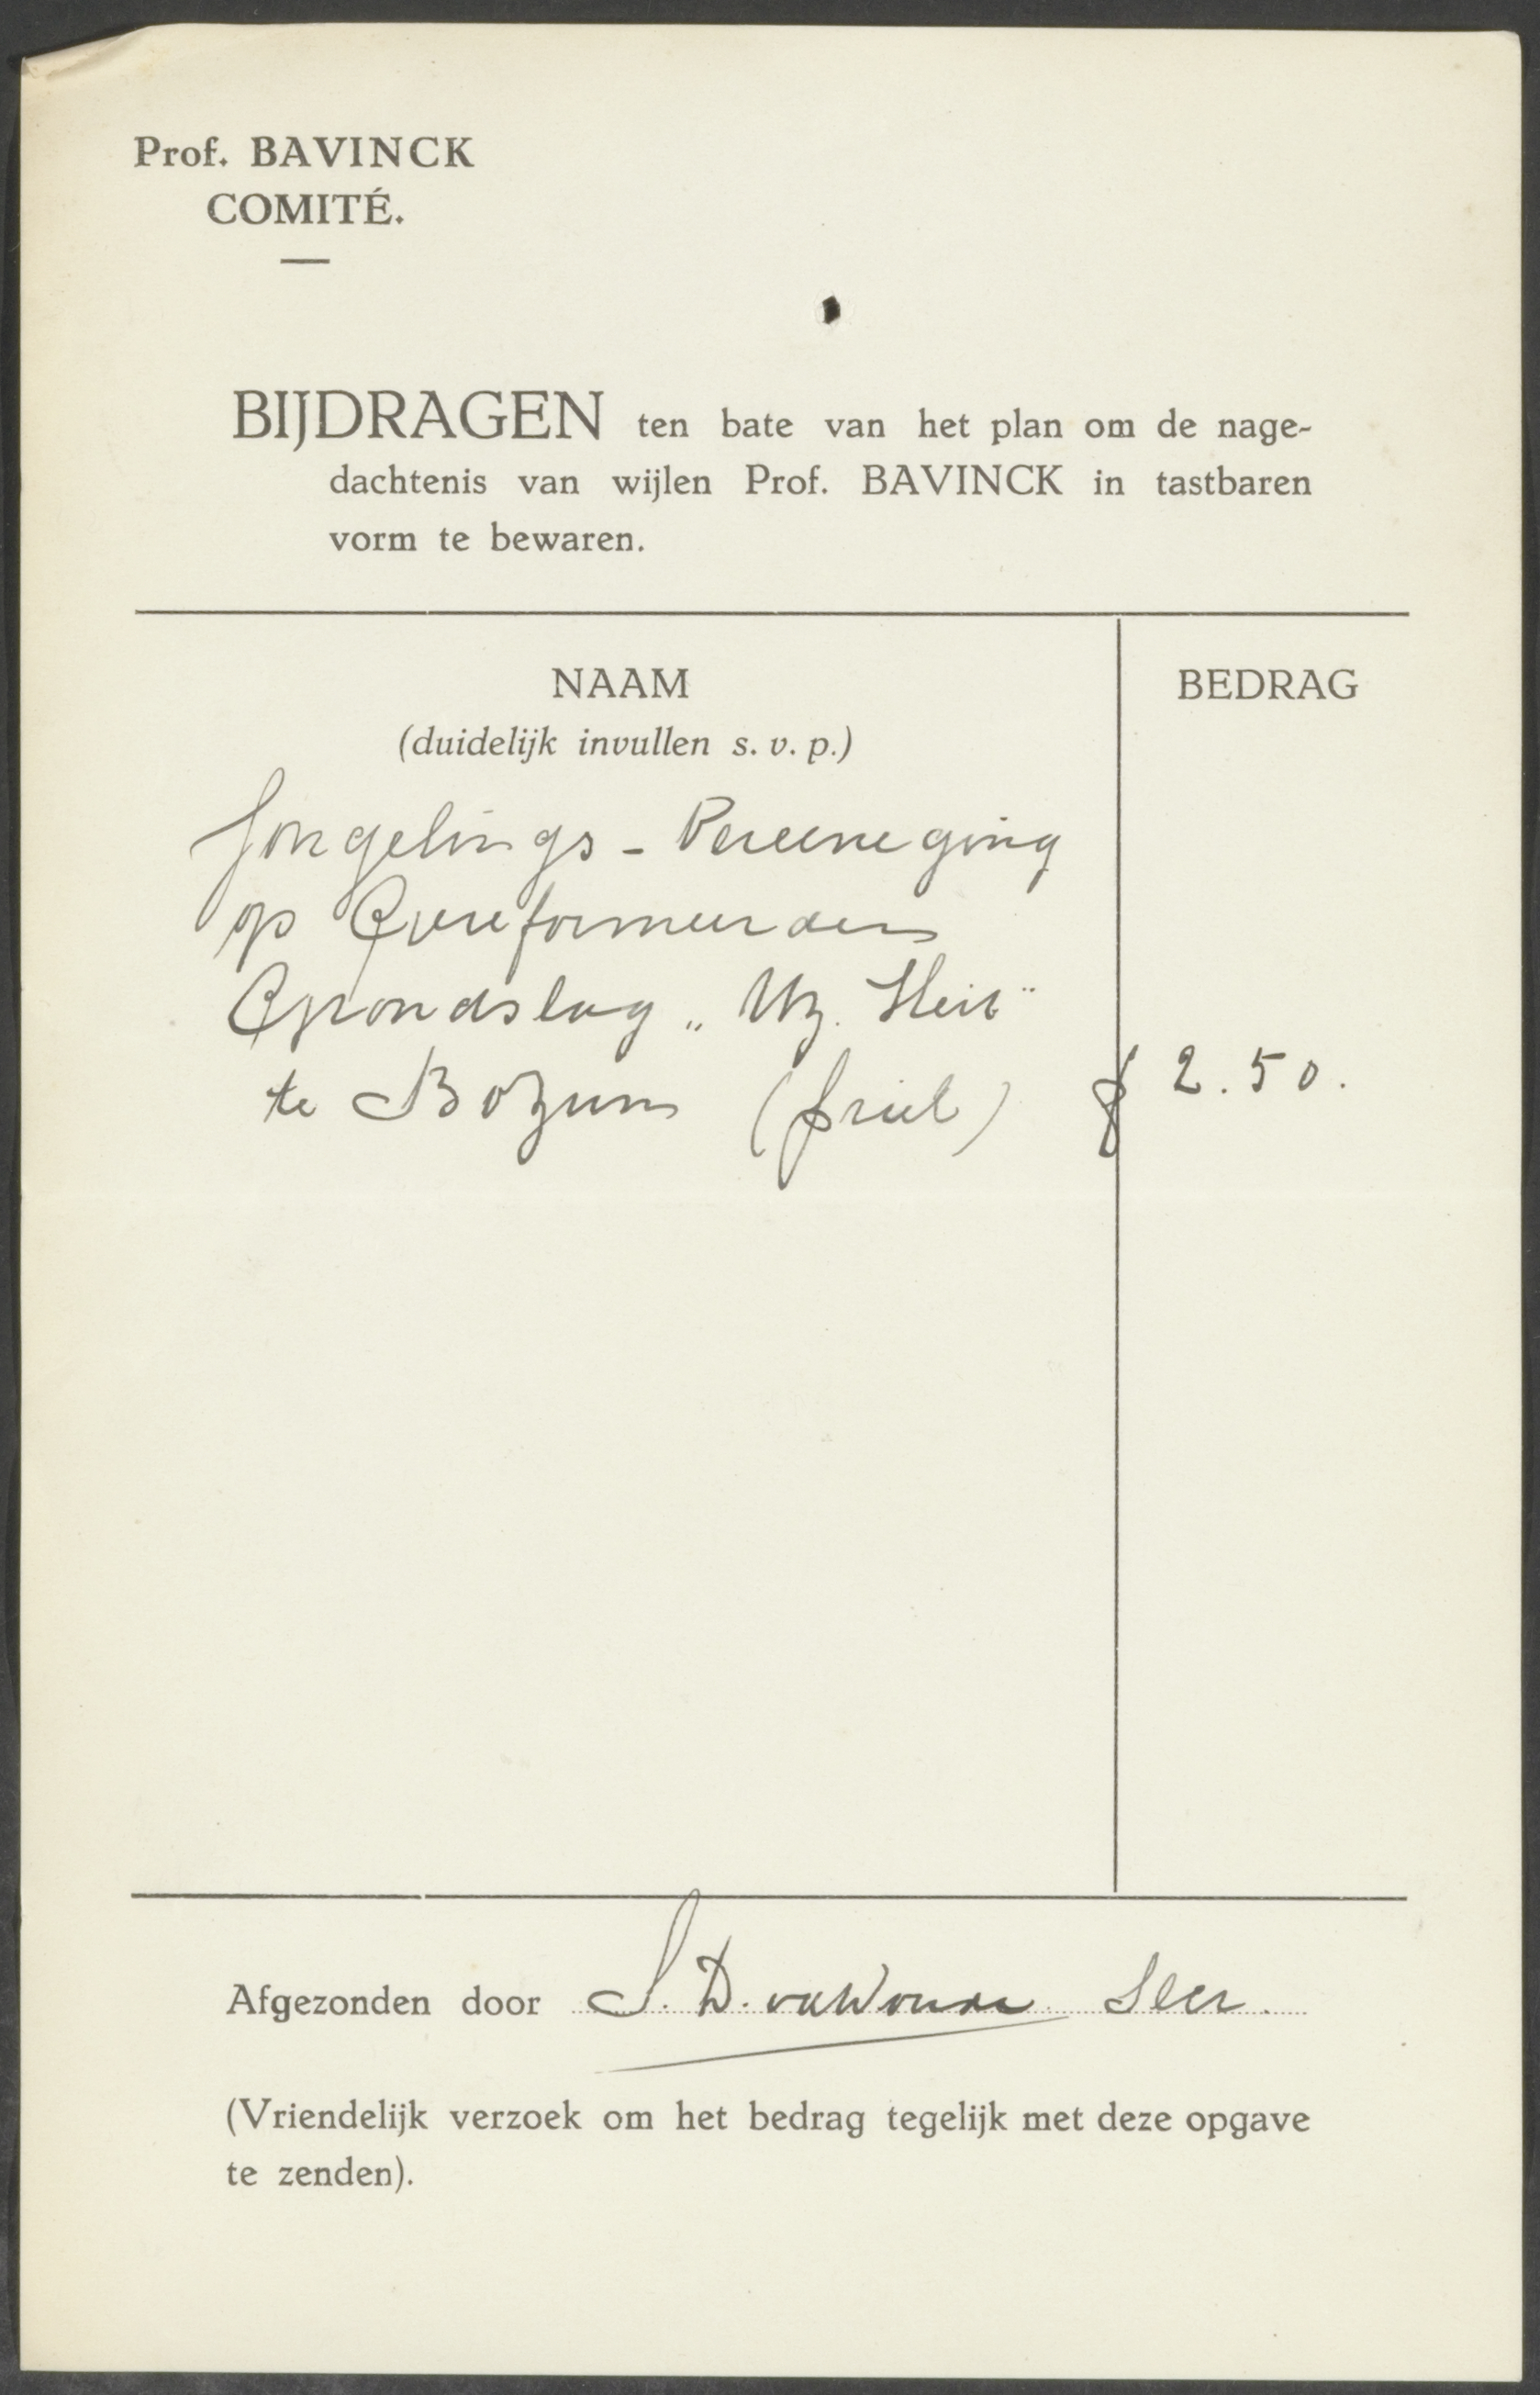 Prof. BAVINCK
COMITÉ.
BIJDRAGEN ten bate van het plan om de nage-
dachtenis van wijlen Prof. BAVINCK in tastbaren
vorm te bewaren.
NAAM
BEDRAG
(duidelijk invullen s. v. p.)
Jongelings - Vereeneging
op Gereformeerden
Grondslag „
te Bozum ƒ 2.50.
Afgezonden door S. D. vd Woude
(Vriendelijk verzoek om het bedrag tegelijk met deze opgave
te zenden).